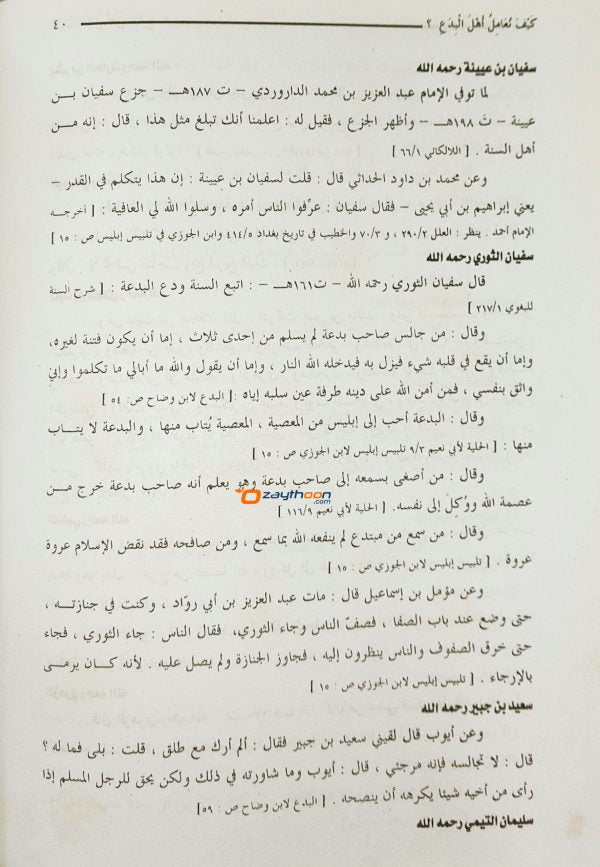 كَيْفَ نُعَامِلُ أَهْلَ الْبِدَعِ ؟ ٤٠
سفيان بن عيينة رحمه الله
لما توفي الإمام عبد العزيز بن محمد الداروردي – ت ١٨٧هـ – جزع سفيان بن
عيينة – تَ ١٩٨هـ – وأظهر الجزع ، فقيل له : اعلمنا أنك تبلغ مثل هذا ، قال : إنه من
أهل السنة . [ اللالكائي ٦٦/١ ]
وعن محمد بن داود الحداثي قال : قلت لسفيان بن عيينة : إن هذا يتكلم في القدر –
يعني إبراهيم بن أبي يحيى – فقال سفيان : عرِّفوا الناس أمره ، وسلوا الله لي العافية : [ أخرجه
الإمام أحمد . ينظر : العلل ٢٩٠/٢ ، و ٧٠/٣ والخطيب في تاريخ بغداد ٤١٤/٥ وابن الجوزي في تلبيس إبليس ص : ١٥ ]
سفيان الثوري رحمه الله
قال سفيان الثوري رحمه الله – ت١٦١هـ – : اتبع السنة ودع البدعة : [ شرح السنة
للبغوي ٢١٧/١ ]
وقال : من جالس صاحب بدعة لم يسلم من إحدى ثلاث ، إما أن يكون فتنة لغيره،
وإما أن يقع في قلبه شيء فيزل به فيدخله الله النار ، وإما أن يقول والله ما أبالي ما تكلموا وإني
واثق بنفسي ، فمن أمن الله على دينه طرفة عين سلبه إياه :[ البدع لابن وضاح ص: ٥٤ ]
وقال : البدعة أحب إلى إبليس من المعصية ، المعصية يُتاب منها ، والبدعة لا يتاب
منها : [ الحلية لأبي نعيم ٩/٣ تلبيس إبليس لابن الجوزي ص : ١٥ ]
وقال : من أصغى بسمعه إلى صاحب بدعة وهو يعلم أنه صاحب بدعة خرج من
zaythoon.com
عصمة الله ووُكِلَ إلى نفسه. [ الحلية لأبي نعيم ١١٦/٩ ]
وقال : من سمع من مبتدع لم ينفعه الله بما سمع ، ومن صافحه فقد نقض الإسلام عروة
عروة . [ تلبيس إبليس لابن الجوزي ص : ١٥ ]
وعن مؤمل بن إسماعيل قال : مات عبد العزيز بن أبي روّاد ، وكنت في جنازته ،
حتى وضع عند باب الصفا ، فصفّ الناس وجاء الثوري، فقال الناس : جاء الثوري ، فجاء
حتى خرق الصفوف والناس ينظرون إليه ، فجاوز الجنازة ولم يصل عليه . لأنه كان يرمى
بالإرجاء . [ تلبيس إبليس لابن الجوزي ص : ١٥ ]
سعيد بن جبير رحمه الله
وعن أيوب قال لقيني سعيد بن جبير فقال : ألم أرك مع طلق ، قلت : بلى فما له ؟
قال : لا تجالسه فإنه مرجئي ، قال : أيوب وما شاورته في ذلك ولكن يحق للرجل المسلم إذا
رأى من أخيه شيئا يكرهه أن ينصحه . [ البدع لابن وضاح ص : ٥٩ ]
سليمان التيمي رحمه الله